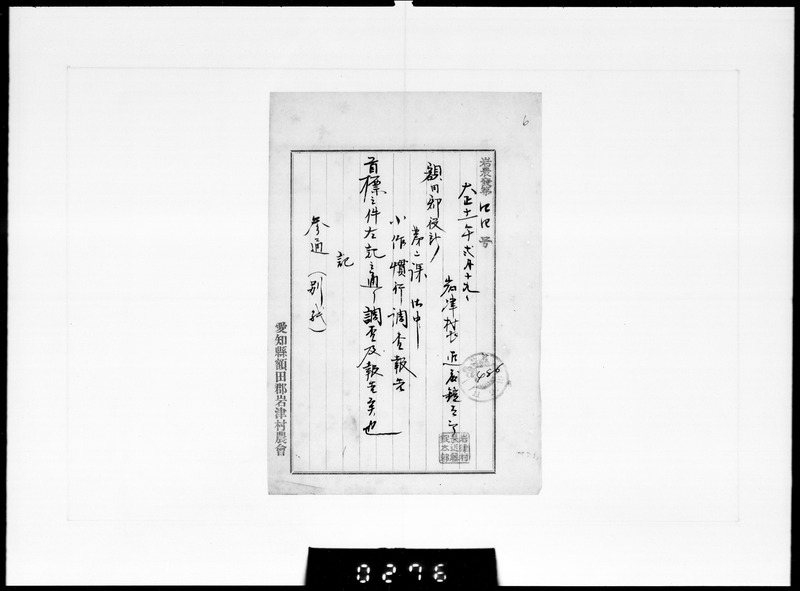 6
岩農發第 号
大正十一年弐月十九日
岩津村長
額田郡役所
第二課 御中
小作慣行調査報告
首標之件左記之通リ調査及報告候也
記
参通(別紙)
愛知縣額田郡岩津村農會
0276